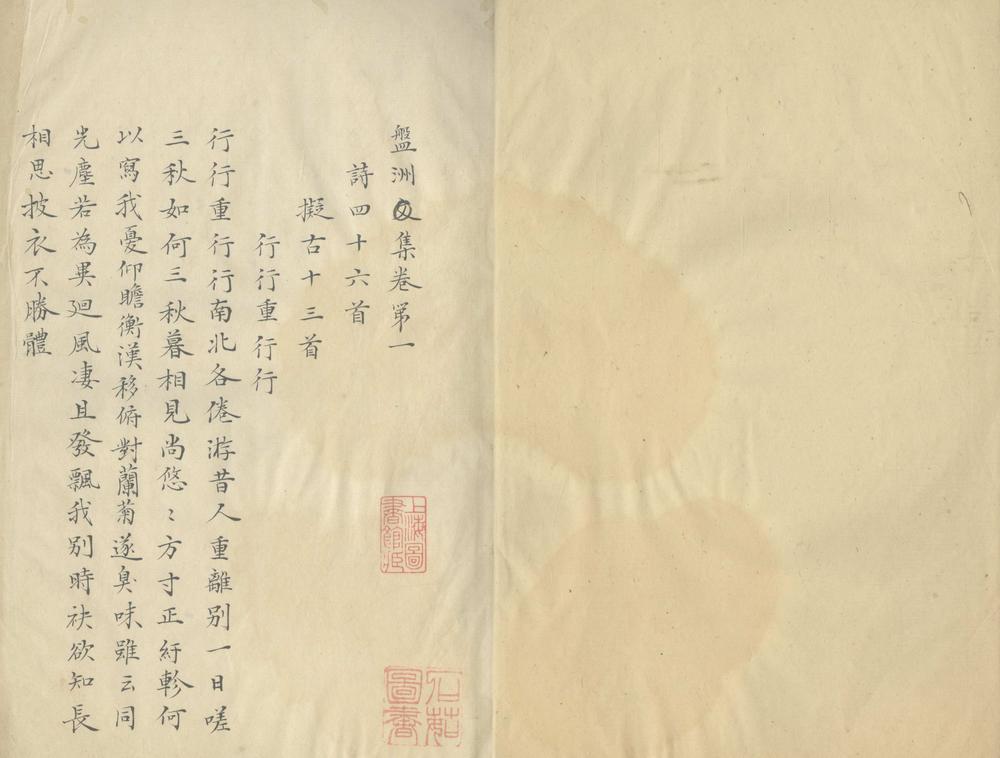 盤洲文集卷第一
詩四十六首
擬古十三首
行行重行行
行行重行行南北各倦游昔人重離別一日嗟
三秋如何三秋暮相見尚悠〻方寸正紆軫何
以寫我憂仰瞻衡漢移俯對蘭菊遂臭味雖云同
光塵若為異廻風凄且發飄我別時袂欲知長
相思披衣不勝體
上海圖
書館藏
圖書